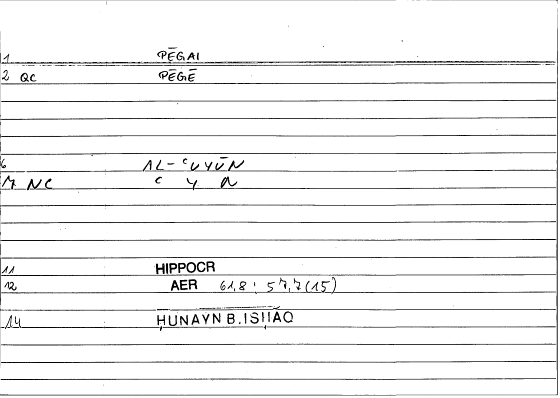 1 PĒGAI
2 QC PĒGĒ
6 AL-ʿUYŪN
7 NC ʿ Y N
11 HIPPOCR
12 AER 61,8 : 57,7(15)
14 ḤUNAYN B.ISḤAQ